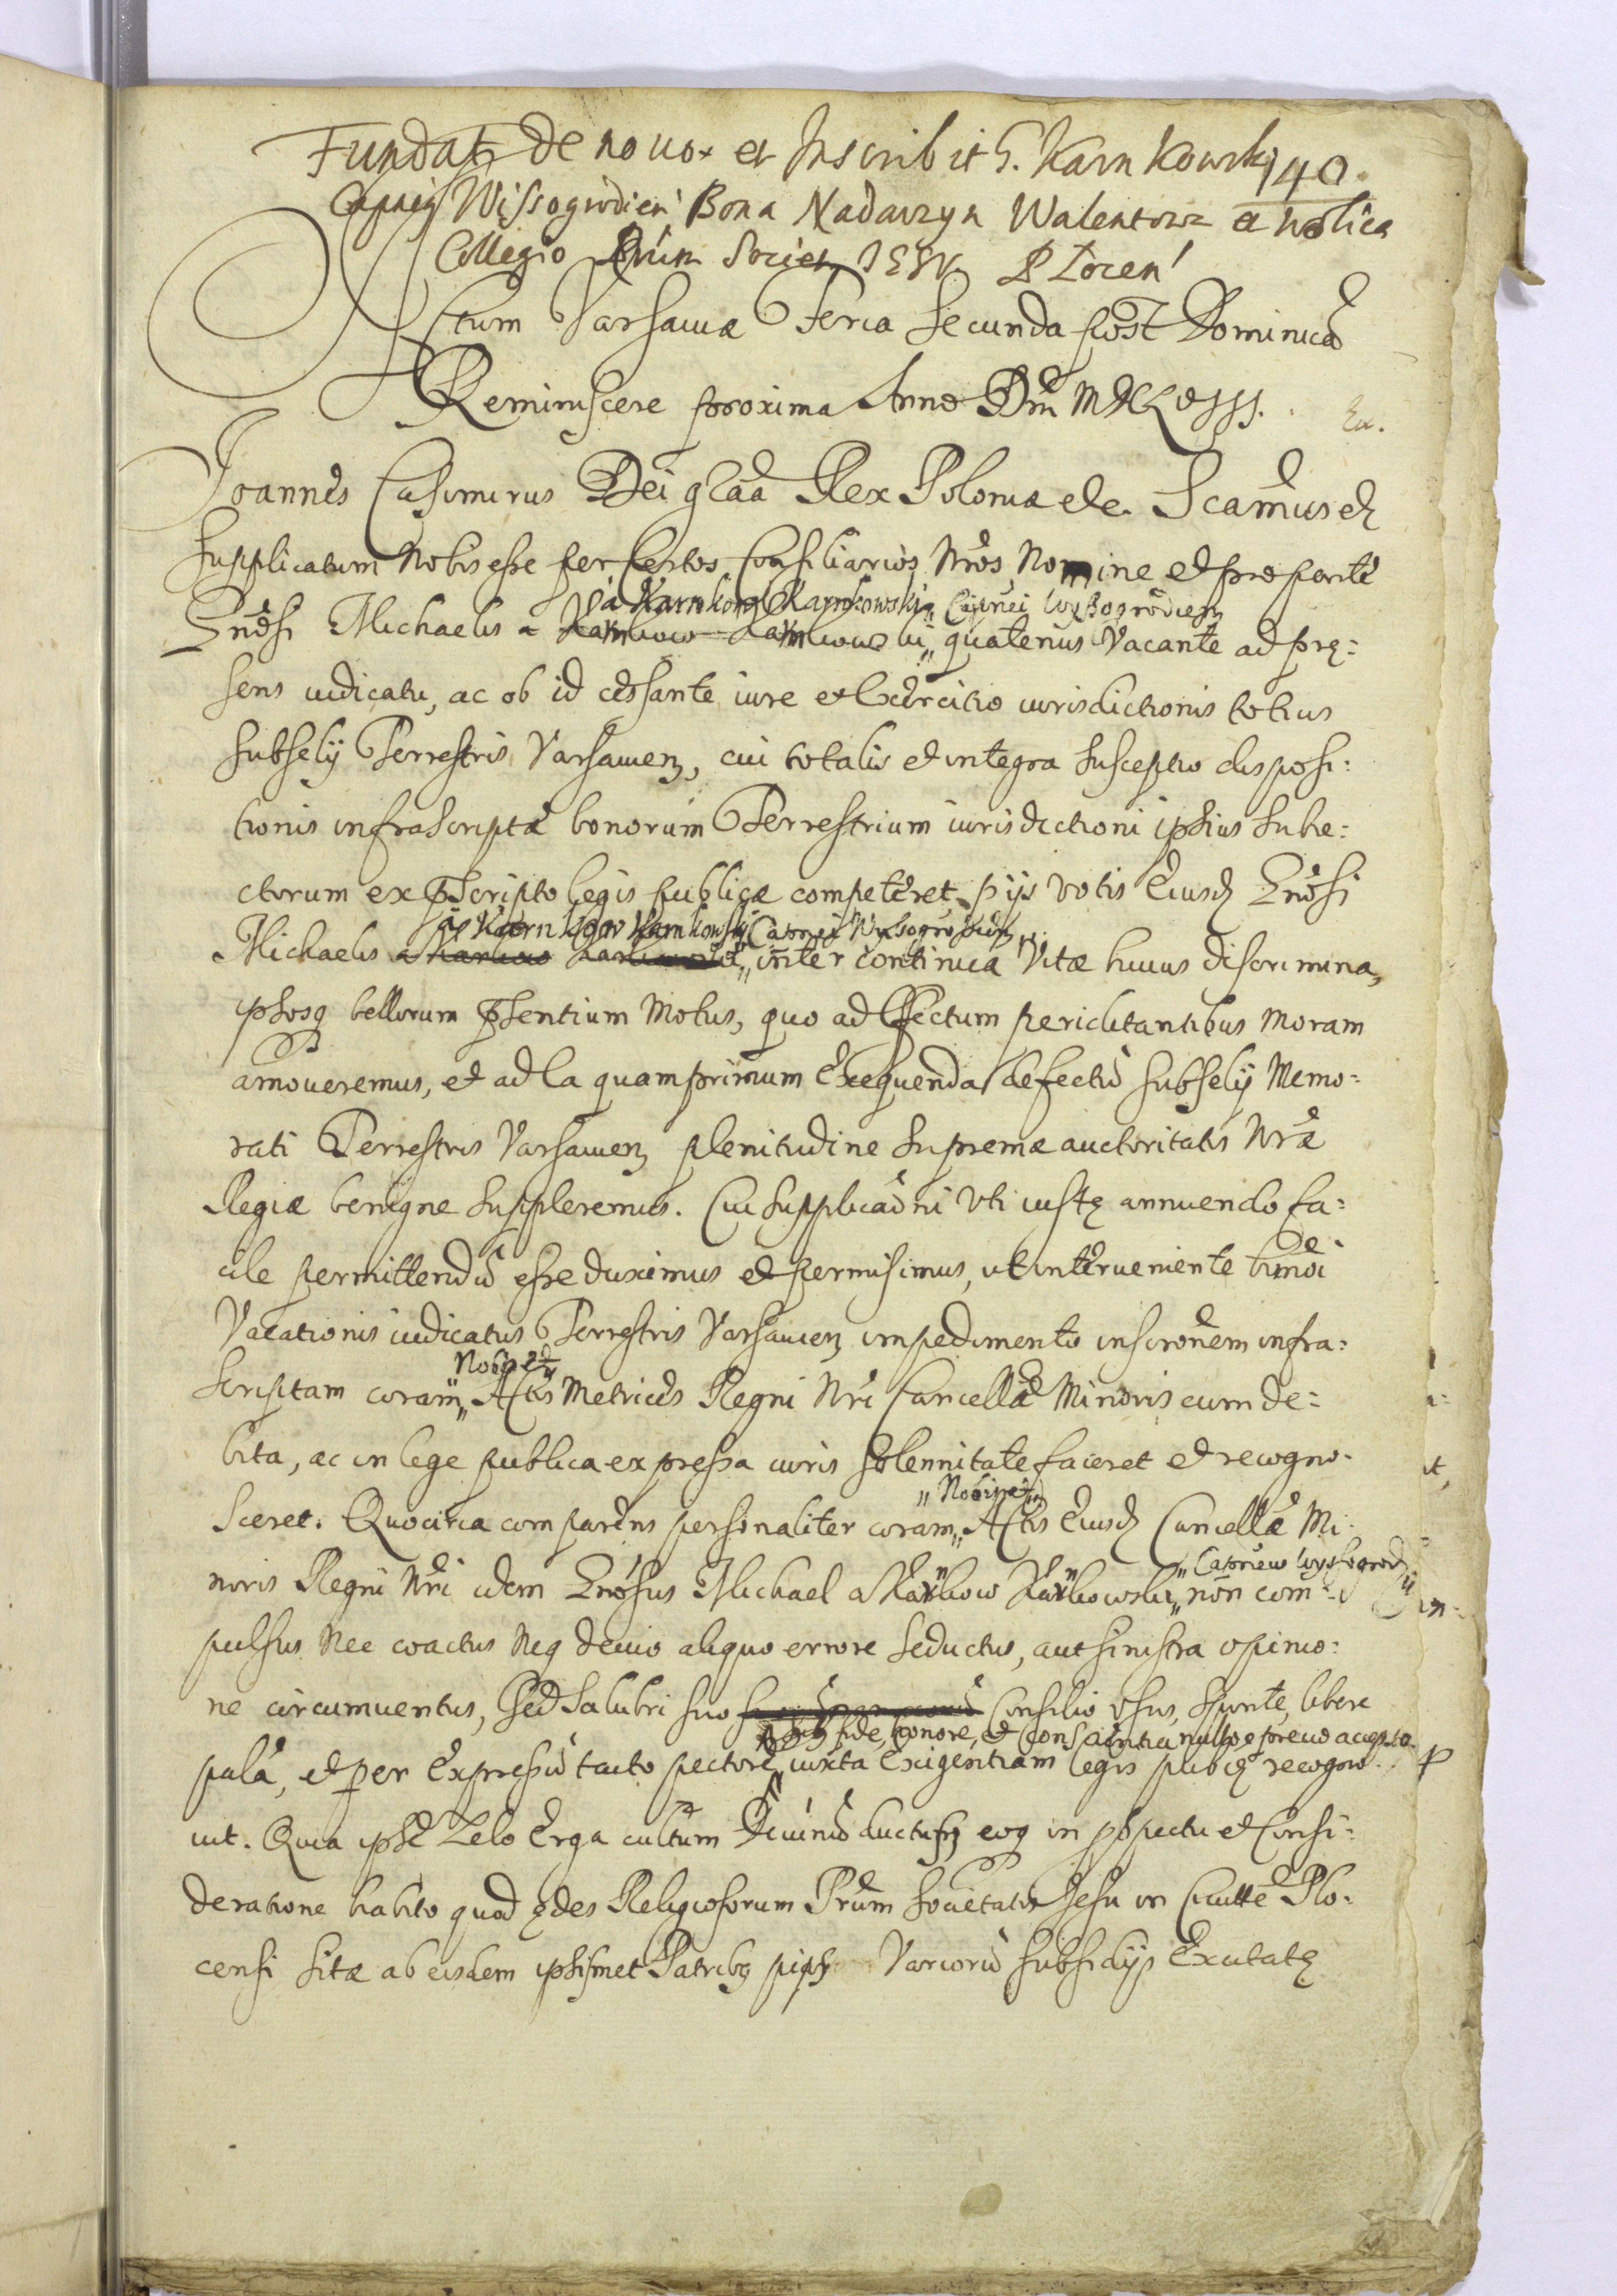 Fundat de nouo et Inscribit G. Karnkowski 140.
Capneus Wissogrodien Bona Nadarzyn Walentow et Wolica
Collegio Prūm Societ. IESV Plocen
Actum Varsauiæ Feria Secunda post Dominicā
Reminiscere proxima Anno Dni
Ex.
Joannes Casimirus Dei grāa Rex Poloniæ etc. Significamus etc.
Supplicatum Nobis esse per Certos Consiliarios Nrōs Nomine et pro parte
à Karnkow Karnkowski Capnei Wyszogrodien
Gnōsi Michaelis a Karnkow Karnkowski quatenus Vacante ad prę:
sens iudicatu, ac ob id cessante iure et Exercitio iurisdictionis totius
Subselij Terrestris Varsauien, cui totalis et integra Susceptio disposi:
tionis infrascriptæ bonorum Terrestrium iurisdictioni ipsius Subie:
ctorum ex pscripto legis publicæ competeret, pijs votis Eiusd Gnōsi
à Karnkow Karnkowski Capnei Wyszogrodien
Michaelis a Karnkow Karnkowski inter continua Vitæ huius discrimina,
ipsosq bellorum psentium Motus, quo ad Effectum periclitantibus Moram
amoueremus, et ad Ea quamprimum Exequenda defectū subselij Memo:
rati Terrestris Varsauien plenitudine Supremæ auctoritatis Nræ
Regiæ benigne Suppleremus. Cui Supplicaōni Vti iustę annuendo fa:
cile permittendū esse duximus et permisimus, ut interueniente hmōi
Vacationis iudicatus Terrestris Varsauien impedimento inscrōnem infra:
Nobis et
Scriptam coram Actis Metrices Regni Nri Cancellæ Minoris cum de:
bita, ac in lege publica expressa iuris Solennitate faceret et recogno:
Nobis et
Sceret. Quocirca comparens personaliter coram Actis Eiusd Cancellæ Mi:
Capneus Wyszogrod
noris Regni Nri idem Gnōsus Michael a Karnkow Karnkowski non com:
pulsus Nec coactus Neq deuio aliquo errore Seductus, aut sinistra opinio:
ne circumuentus, Sed Salubri suo Consilio vsus, Sponte, libere
fide, honore, et Conscientia
palā, et per Expressū tacto pectore iuxta Exigentiam legis publicę recogno:
uit. Quia ipse Zelo Erga cultum Diuinū ductus, eoq in pspectu et Consi:
deratione habito quod ędes Religiosorum Prūm Societatis Jesu in Ciuitte Plo:
censi Sitæ ab eisdem ipsismet Patribq pijs Variorū Subsidijs Excitatę